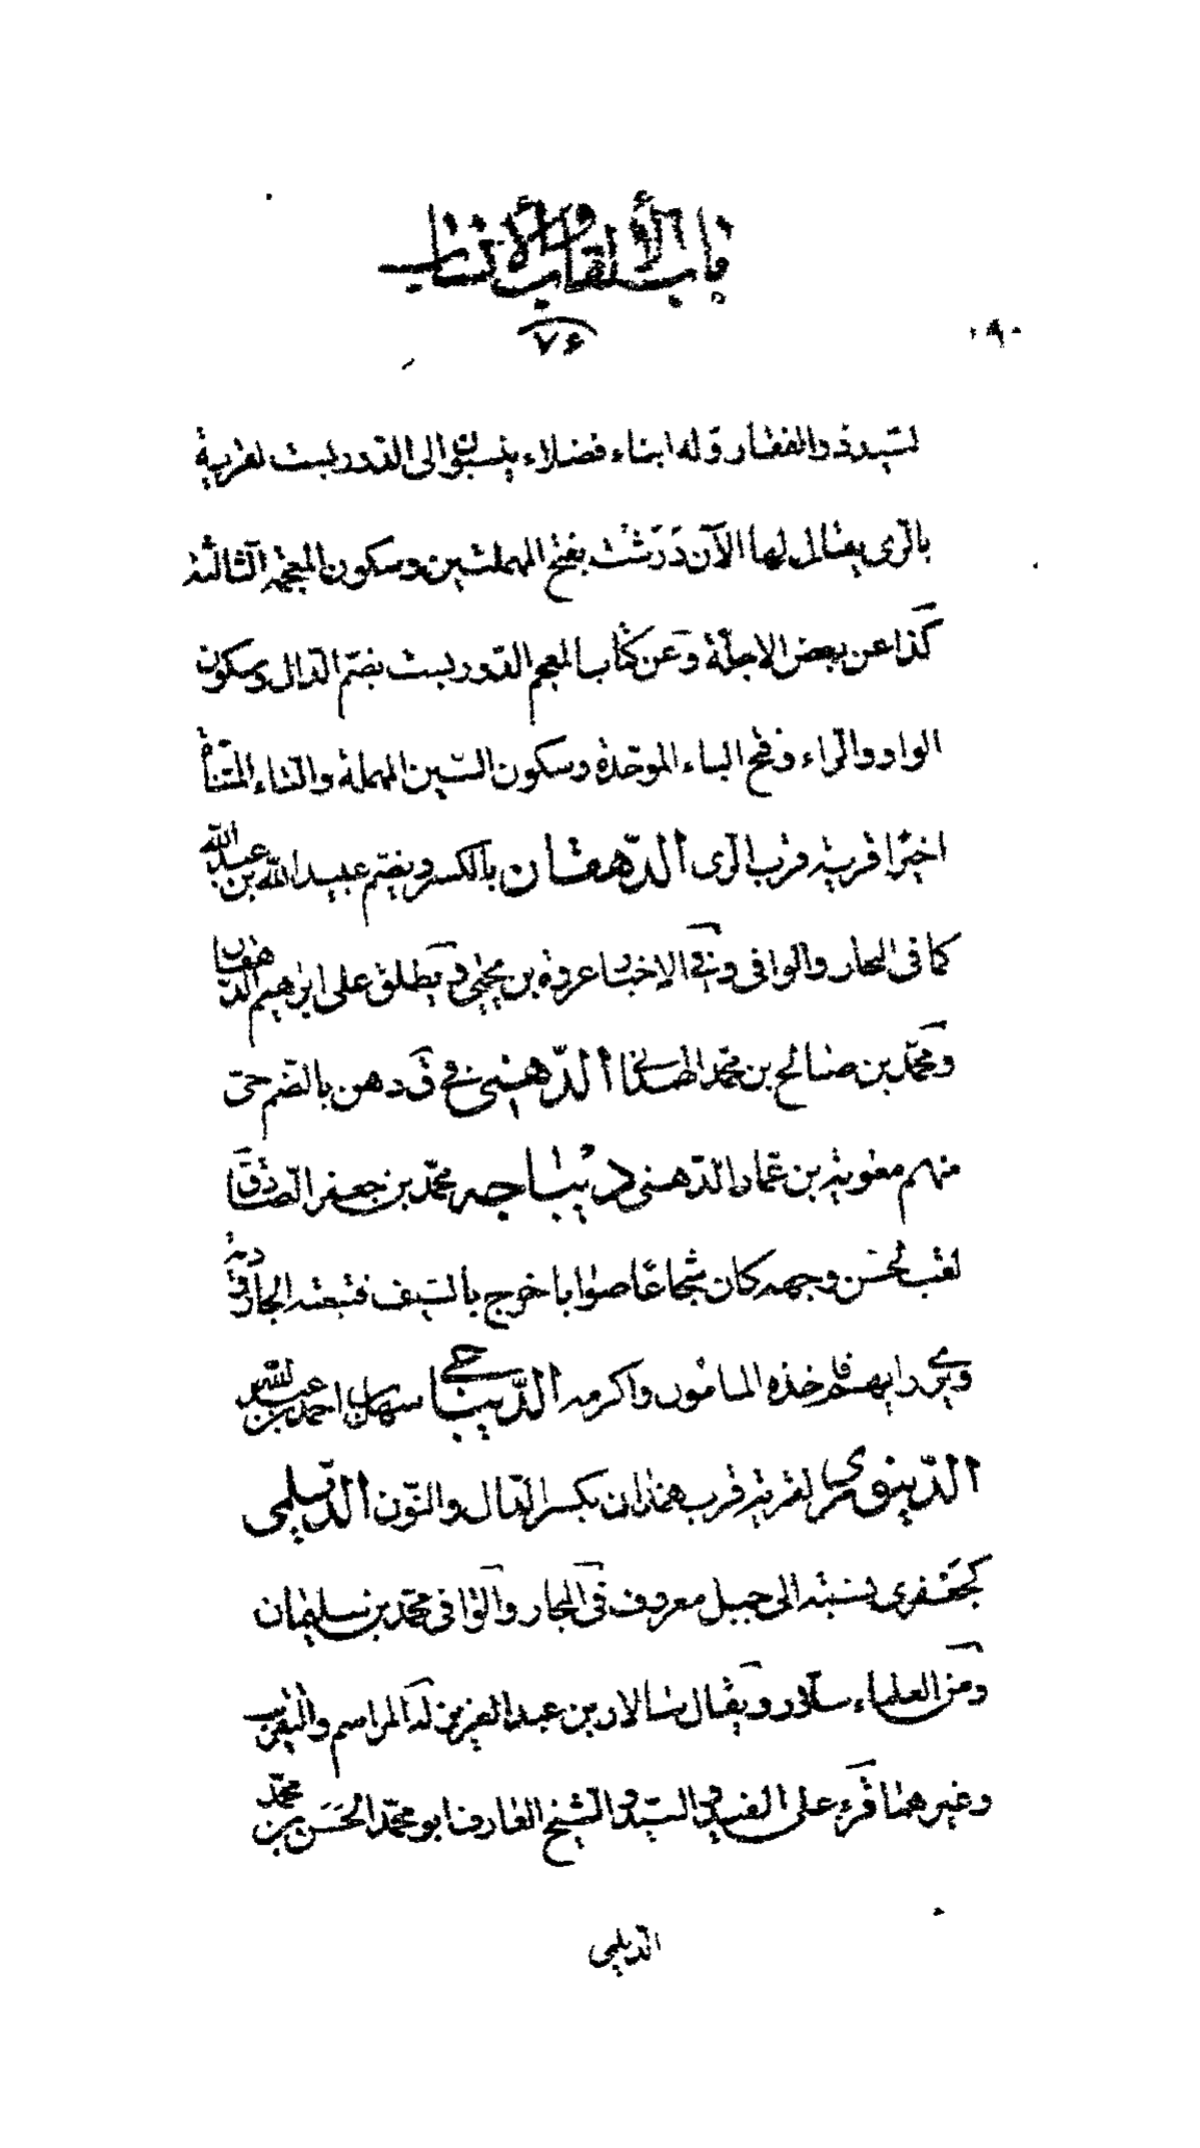 باب الألقاب والأنساب
٧٤
٩٠
لسيد ذو الفقار وله ابناء فضلاء ينسبون الى الدوريست لقرية
بالرى يقال لها الآن دَرَشْت بفتح المهملتين وسكون المعجمة الثالثة
كذا عن بعض الاجلة وعن كتاب المعجم الدوربست بضم الدال وسكون
الواو والراء وفتح الباء الموحّدة وسكون السين المهملة والتاء المثناة
اخيرا قرية قرب الرى الدّهقان بالكسر وبضم عبيد الله بن عبد الله
كما فى البحار والوافى وفى الاخبار عروة بن يحيى ويطلق على ابراهيم الدهقان
ومحمّد بن صالح بن محمّد الهمدانى الدّهنىّ فى ق دهن بالضم حىّ
منهم معوية بن عمار الدّهنى ديباجه محمّد بن جعفر الصّادق
لقب لحسن وجهه كان شجاعا صواما خرج بالسيف فتبعته الجارودية
ويرى رايهم فاخذه المامون واكرمه الدّيباجى سهل بن احمد بن عبد الله
الدّينورى لقرية قرب همذان بكسر الدال والنّون الديلمى
كجعفرى نسبة الى جبل معروف فى البحار والوافى محمّد بن سليمان
ومن العلماء سلّار ويقال سالار بن عبد العزيز له المراسم والتقريب
وغيرهما قرء على المفيد والسيّد والشيخ العارف ابو محمّد الحَسَن بن محمّد
الديلمى